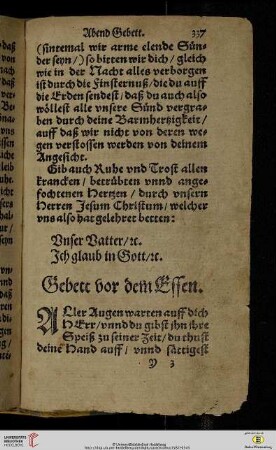 Abend Gebett. 337
(sintemal wir arme elende Sün-
der seyn/) so bitten wir dich/ gleich
wie in der Nacht alles verborgen
ist durch die Finsternuß/ die du auff
die Erden sendest/ daß du auch also
wöllest alle vnsere Sünd vergra-
ben durch deine Barmhertzigkeit/
auff daß wir nicht von deren we-
gen verstossen werden von deinem
Angesicht.
Gib auch Ruhe vnd Trost allen
krancken/ betrübten vnnd ange-
fochtenen Hertzen/ durch vnsern
Herren Jesum Christum/ welcher
vns also hat gelehret betten:
Vnser Vatter/ ꝛc.
Ich glaub in Gott/ ꝛc.
Gebett vor dem Essen.
ALler Augen warten auff dich
HErr/ vnnd du gibst ihn ihre
Speiß zu seiner Zeit/ du thust
deine Hand auff/ vnnd sättigest
Y 3
UNIVERSITÄTS-
BIBLIOTHEK
HEIDELBERG